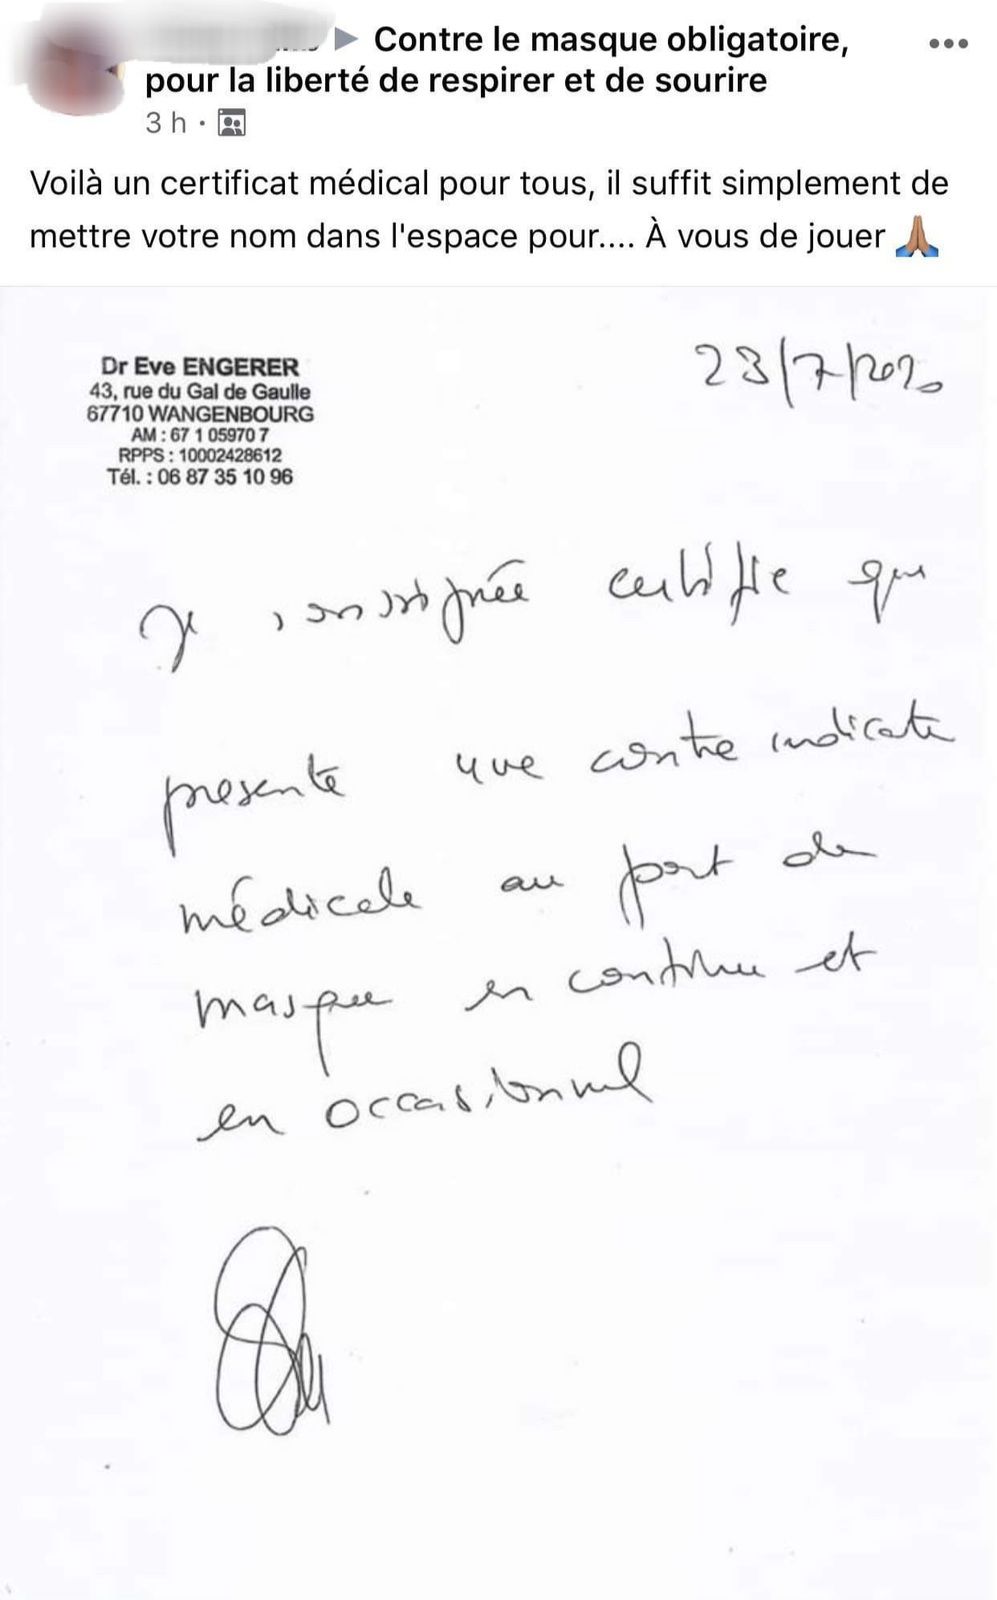 Contre le masque obligatoire,
pour la liberté de respirer et de sourire
3 h
Voilà un certificat médical pour tous, il suffit simplement de
mettre votre nom dans l'espace pour.... À vous de jouer 🙏🏽
Dr Eve ENGERER
43, rue du Gal de Gaulle
67710 WANGENBOURG
AM : 67 1 05970 7
RPPS : 10002428612
Tél. : 06 87 35 10 96
23/7/2020
Je soussignée certifie que
présente une contre indicati
médicale au port de
masque en continu et
en occasionnel